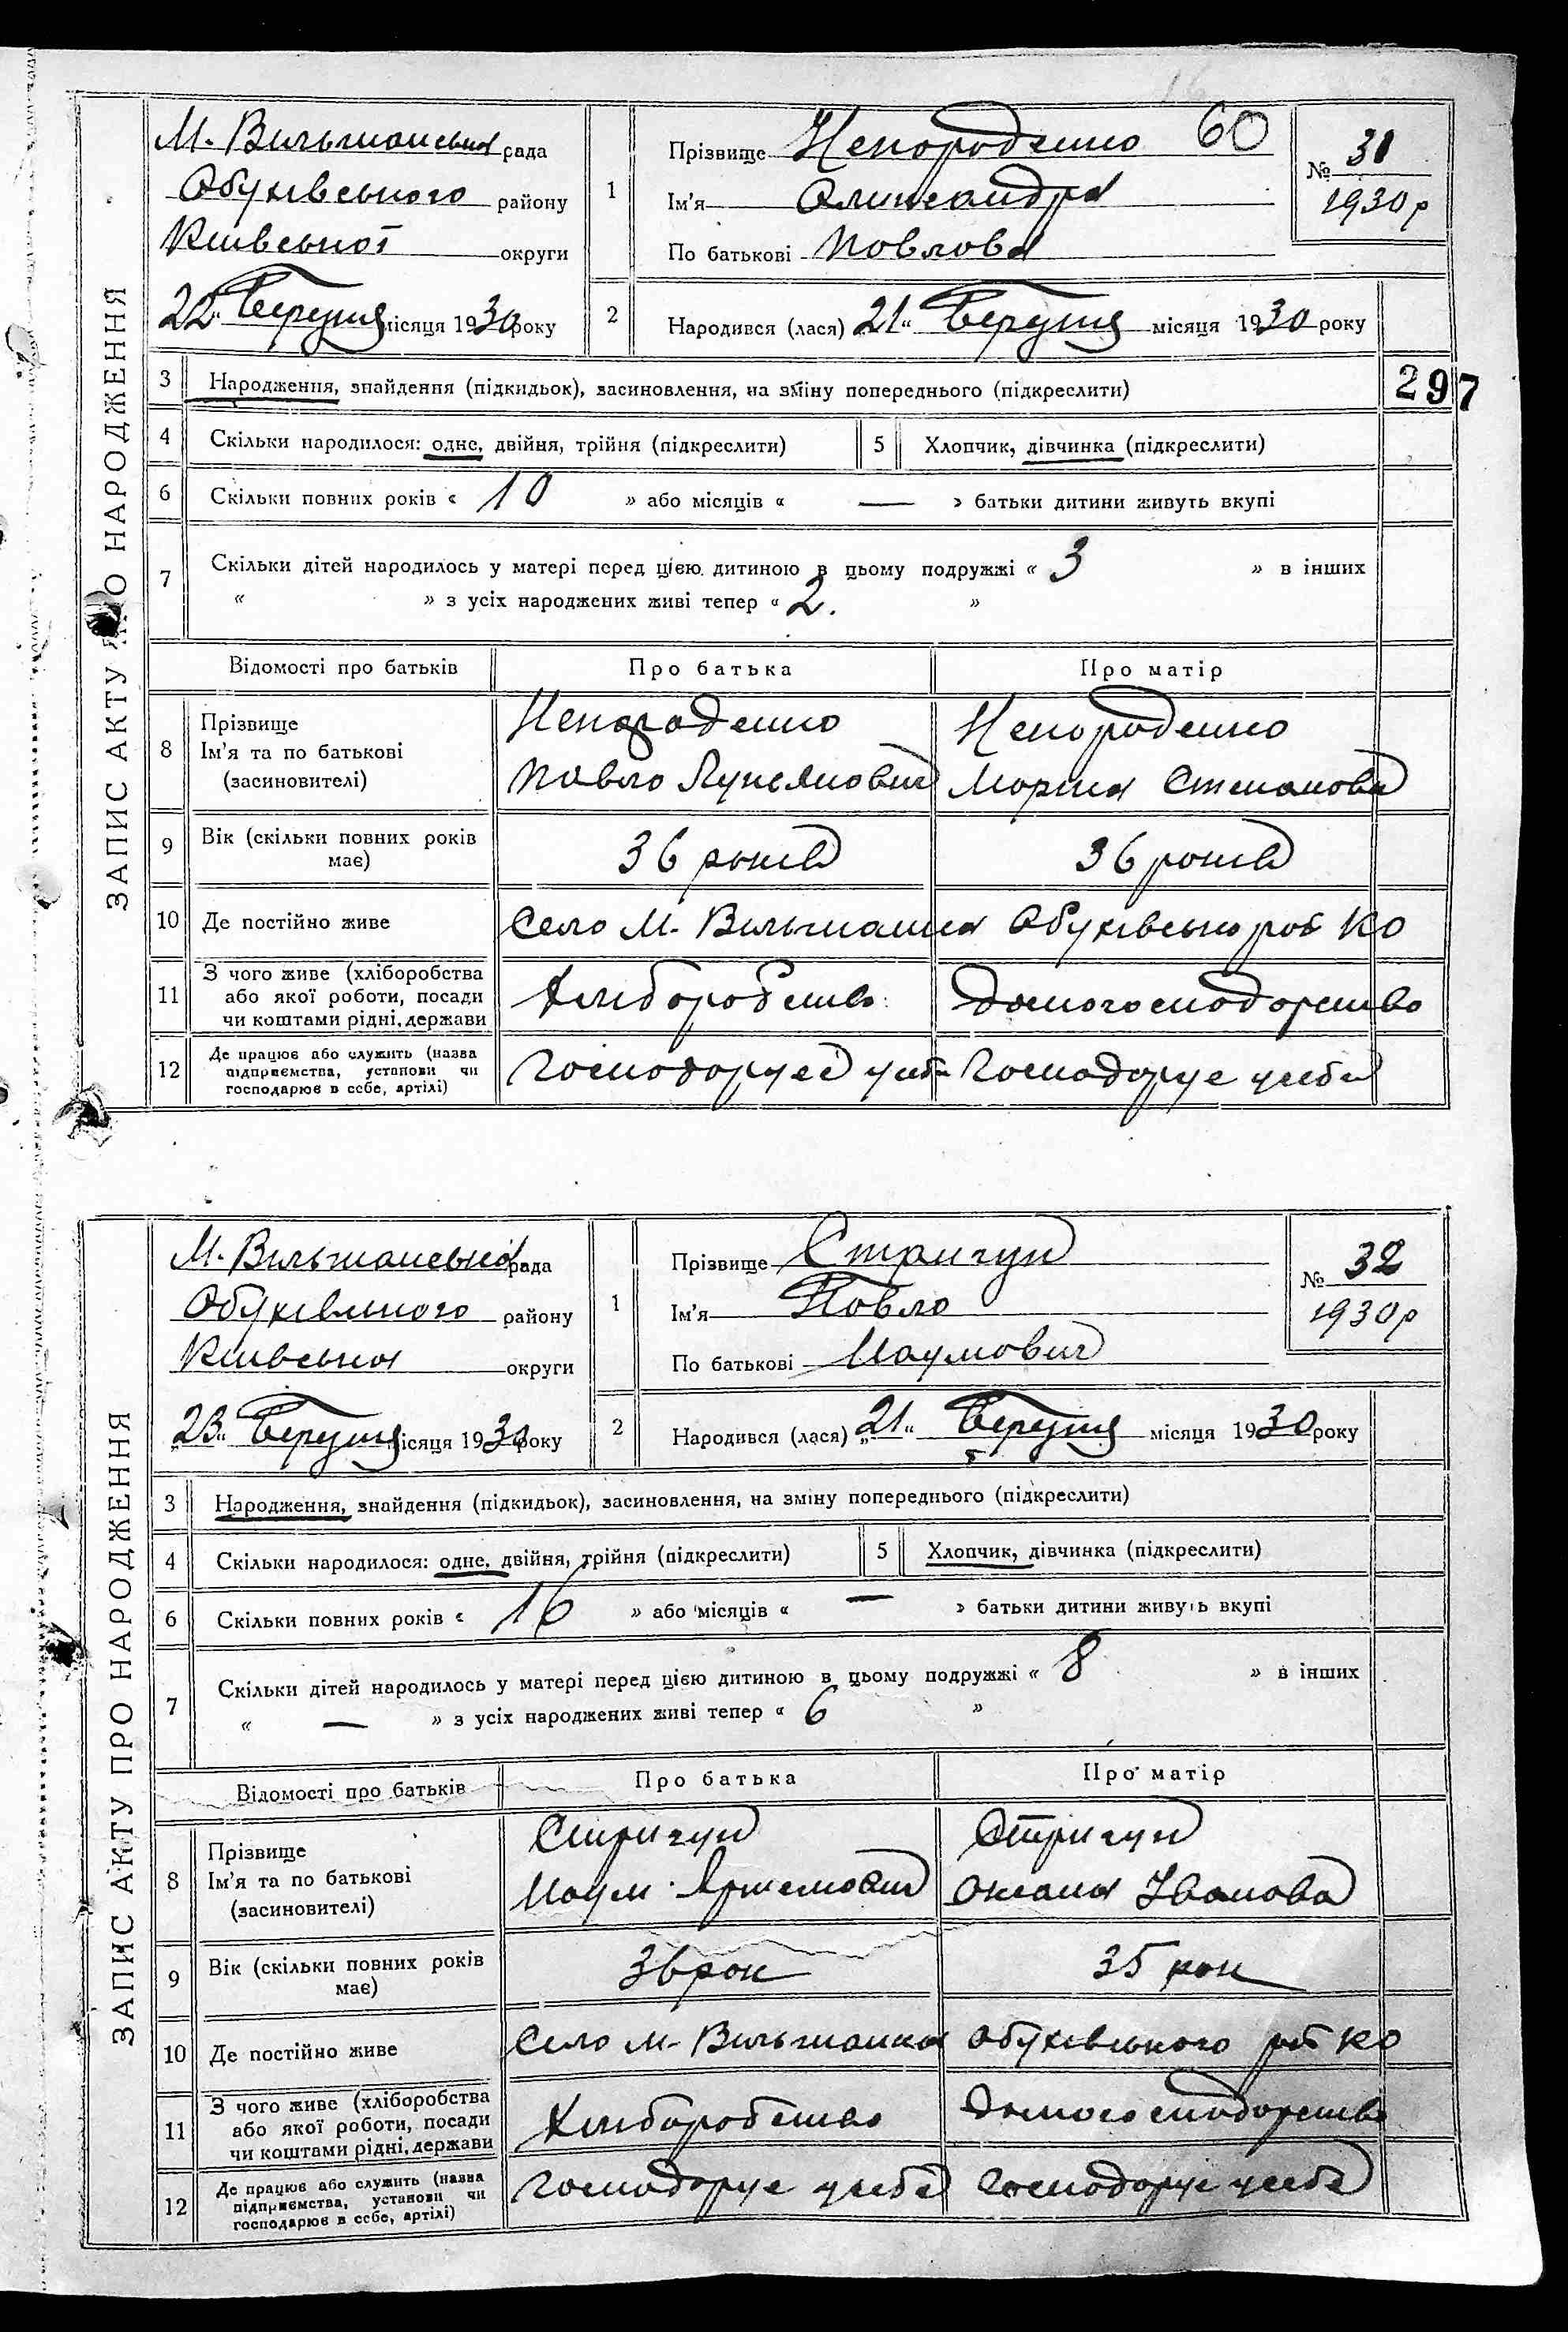 ЗАПИС АКТУ ПРО НАРОДЖЕННЯ
М. Вільшанська рада
Обухівського району
Київської округи
22 " Березня місяця 1930 року
1
Прізвище Непороденко 60
Ім'я Олександра
По батькові Павлова
№ 31
1930 р
2 Народився (лася) 21 " Березня місяця 1930 року
297
3 Народження, знайдення (підкидьок), засиновлення, на зміну попереднього (підкреслити)
4 Скільки народилося: одне, двійня, трійня (підкреслити) 5 Хлопчик, дівчинка (підкреслити)
6 Скільки повних років « 10 » або місяців « — » батьки дитини живуть вкупі
7 Скільки дітей народилось у матері перед цією дитиною в цьому подружжі « 3 » в інших
« » з усіх народжених живі тепер « 2. »
Відомості про батьків Про батька Про матір
8 Прізвище Ім'я та по батькові (засиновителі)
Непороденко Непороденко
Павло Лукьянович Мария Степанова
9 Вік (скільки повних років має) 36 років 36 років
10 Де постійно живе Село М. Вільшанка Обухівсько ро КО
11 З чого живе (хліборобства або якої роботи, посади чи коштами рідні, держави Хліборобство Домогосподорство
12 Де працює або служить (назва підприємства, установи чи господарює в себе, артілі) Господорує усебе Господорує усебе
ЗАПИС АКТУ ПРО НАРОДЖЕННЯ
М. Вільшанська рада
Обухівського району
Київська округи
23 " Березня місяця 1930 року
1
Прізвище Стригун
Ім'я Павло
По батькові Наумович
№ 32
1930 р
2 Народився (лася) „21 " Березня місяця 1930 року
3 Народження, знайдення (підкидьок), засиновлення, на зміну попереднього (підкреслити)
4 Скільки народилося: одне, двійня, трійня (підкреслити) 5 Хлопчик, дівчинка (підкреслити)
6 Скільки повних років « 16 » або місяців « — » батьки дитини живуть вкупі
7 Скільки дітей народилось у матері перед цією дитиною в цьому подружжі « 8 » в інших
« — » з усіх народжених живі тепер « 6 »
Відомості про батьків Про батька Про матір
8 Прізвище Ім'я та по батькові (засиновителі)
Стригун Стригун
Наум Артемович Оксана Іванова
9 Вік (скільки повних років має) 36 рок 35 рок
10 Де постійно живе Село М. Вільшанка Обухівського ро КО
11 З чого живе (хліборобства або якої роботи, посади чи коштами рідні, держави Хліборобство Домогосподорство
12 Де працює або служить (назва підприємства, установи чи господарює в себе, артілі) Господорує усебе Господорує усебе